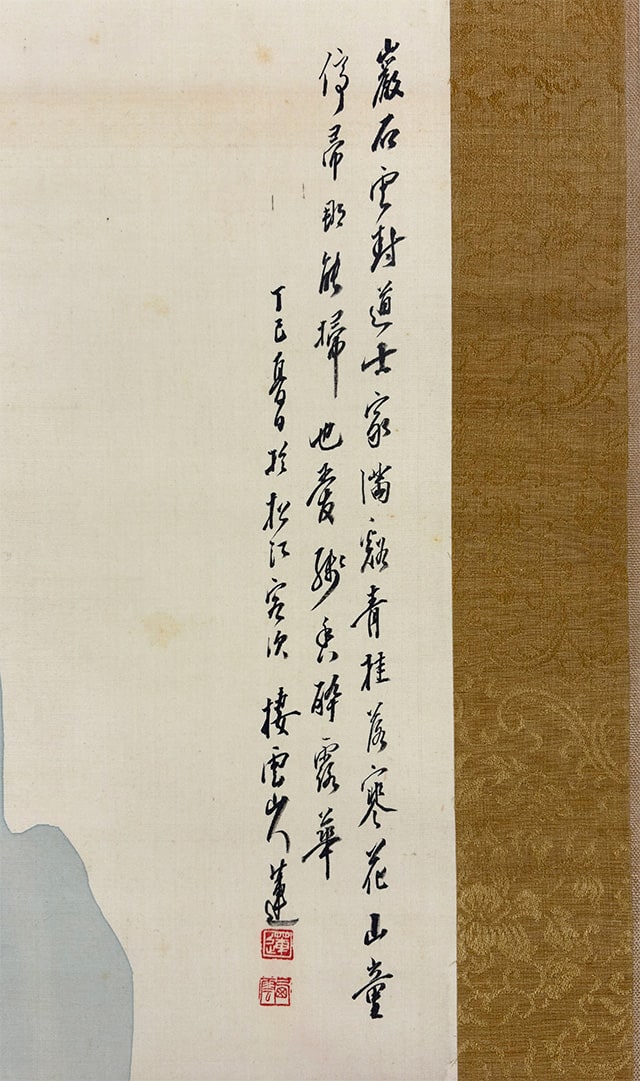 巖石雲封道士家滿谿青桂落寒花山童
停帚那能掃也愛殘香醉露華
丁巳夏日於松江客次 棲雲山人蓮